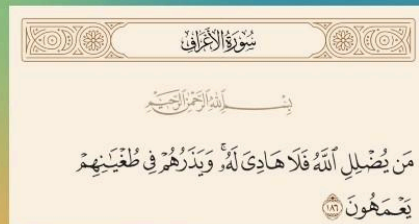 سُورَةُ الأَعۡرَافِ
بِسۡمِ ٱللَّهِ ٱلرَّحۡمَٰنِ ٱلرَّحِيمِ
مَن يُضۡلِلِ ٱللَّهُ فَلَا هَادِيَ لَهُۥۚ وَيَذَرُهُمۡ فِي طُغۡيَٰنِهِمۡ
يَعۡمَهُونَ ١٨٦